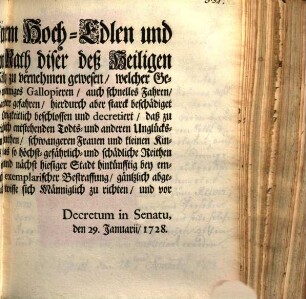 Hoch-Edlen und
Rath diser deß Heiligen
zu vernehmen gewesen / welcher Ge-
Gallopieren / auch schnelles Fahren /
gefahren / hierdurch aber starck beschädiget
beschlossen und decretiert / daß zu
entstehenden Todts- und anderen Unglücks-
schwangeren Frauen und kleinen Kin-
so höchst-gefährlich- und schädliche Reithen
und nächst hiesiger Stadt hinkünfftig bey
exemplarischer Bestraffung / gäntzlich abge-
wisse sich Männiglich zu richten / und vor
Decretum in Senatu,
den 29. Januarii / 1728.